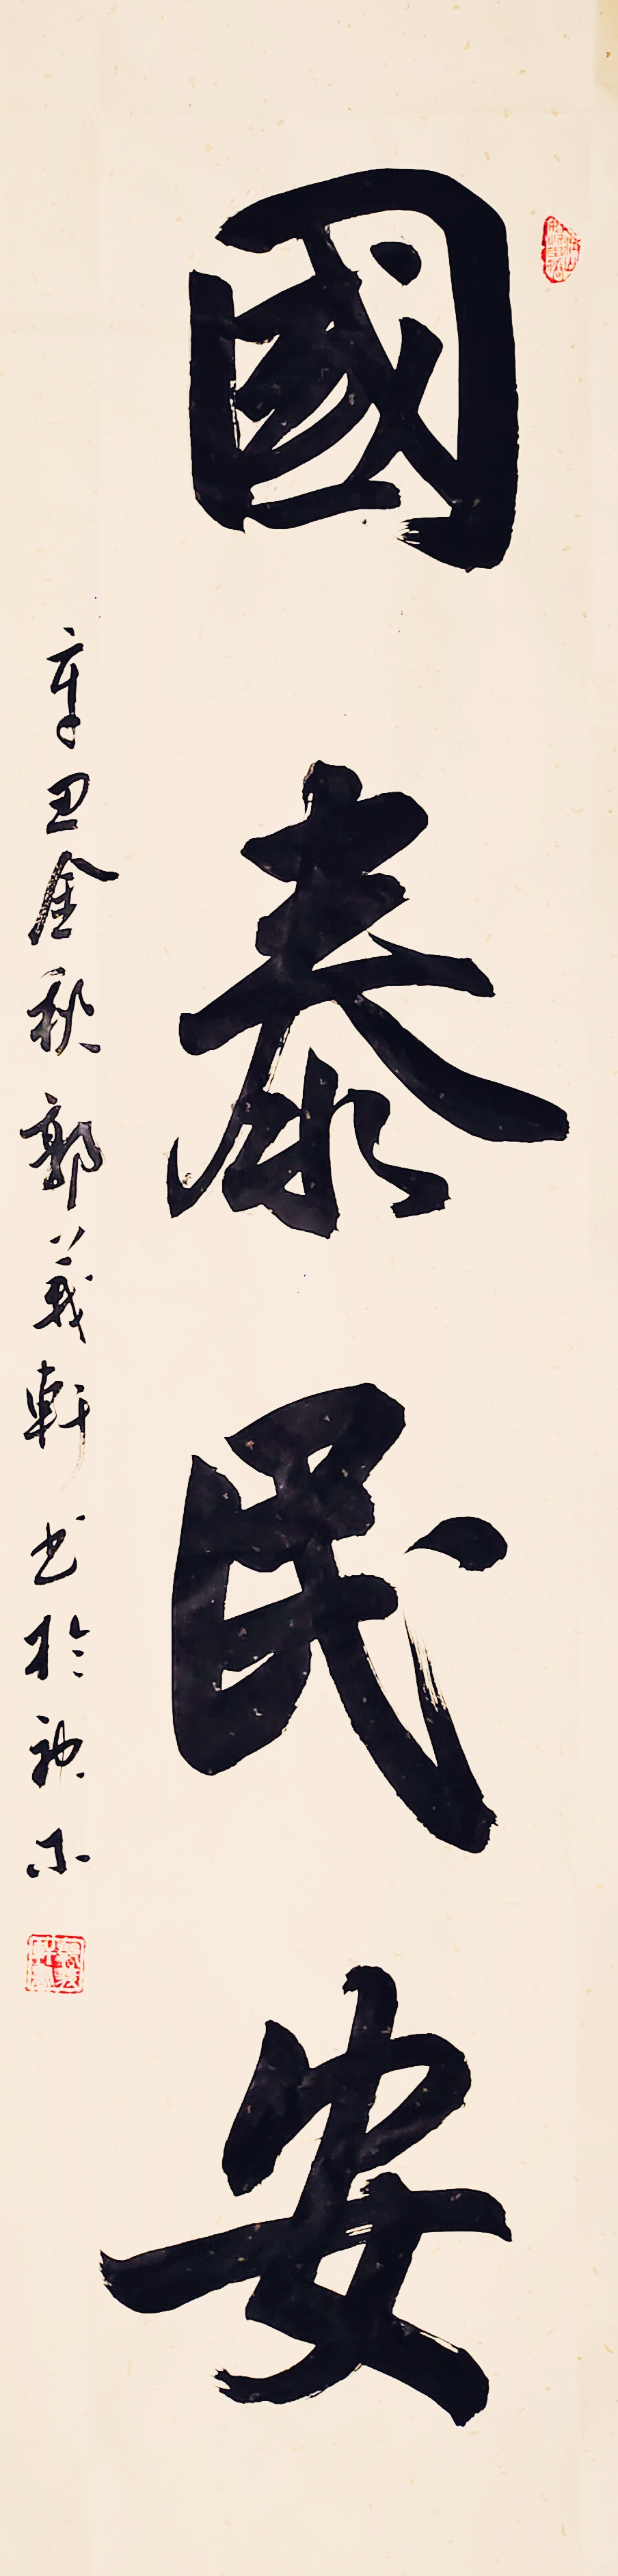 國泰民安
辛丑金秋郭義軒书於神木